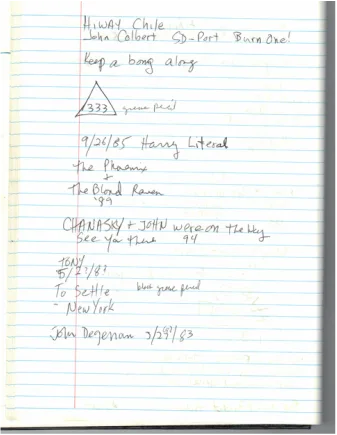 HiWAY Chile
John Colbert SD-Port Burn One!
Keep a bong along
333 grease pencil
9/26/85 Harry Literal
The Phoenix
+
The Blond Raven
'89
CHANASKY + JOHN were on the way
See Ya there 94
TONY
5/2?/8?
To Seattle black grease pencil
- New York
John Degerran 3/29?/83